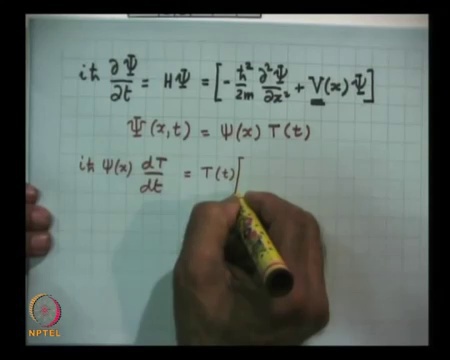 iħ ∂Ψ/∂t = HΨ = [-ħ²/2m ∂²Ψ/∂x² + V(x)Ψ]
Ψ(x,t) = ψ(x) T(t)
iħ ψ(x) dT/dt = T(t)[
NPTEL